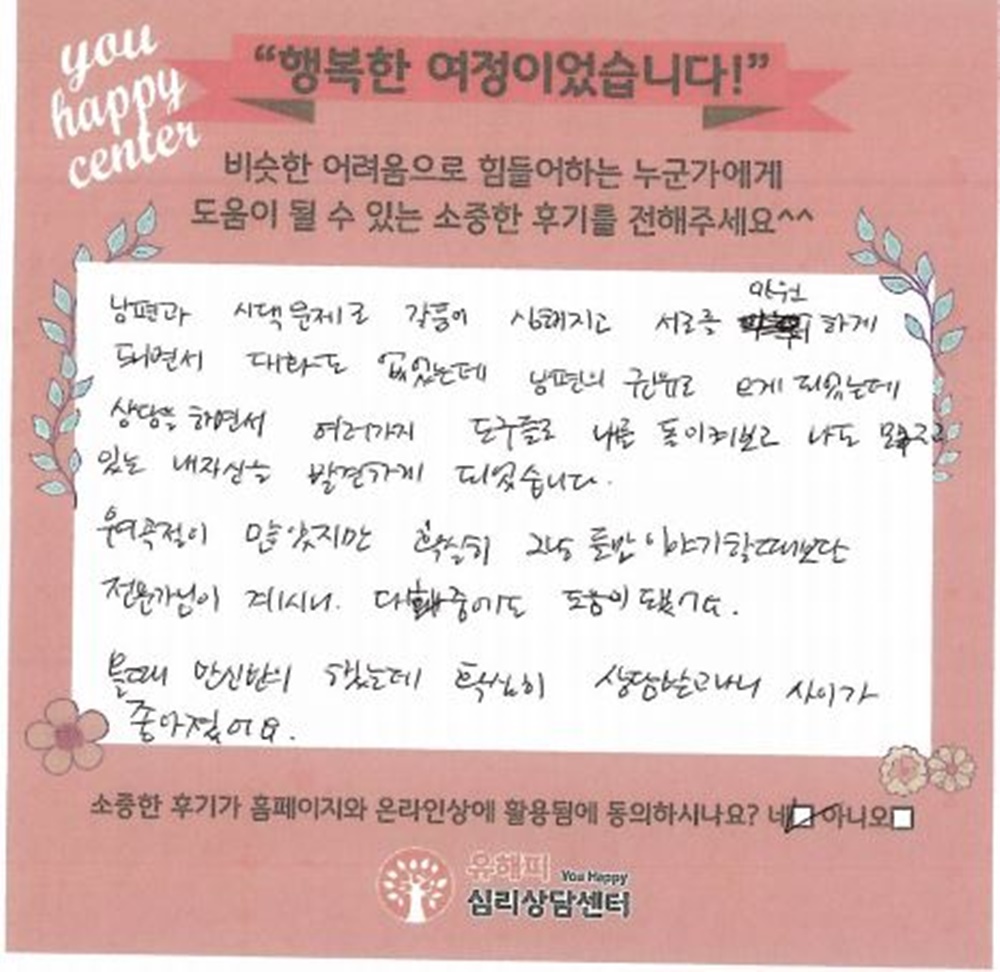 you
happy
center
“행복한 여정이었습니다!”
비슷한 어려움으로 힘들어하는 누군가에게
도움이 될 수 있는 소중한 후기를 전해주세요^^
남편과 시댁문제로 갈등이 심해지고 서로를 하게
되면서 대화도 없었는데 남편의 권유로 오게 되었는데
상담을 하면서 여러가지 도구들로 나를 돌이켜보고 나도 모르고
있는 내자신을 발견하게 되었습니다.
우여곡절이 많았지만 확실히 그냥 둘만 이야기할때보단
전문가님이 계시니. 대화중에도 도움이 되요.
올때 반신반의 했는데 확실히 상담받고나니 사이가
좋아졌어요.
소중한 후기가 홈페이지와 온라인상에 활용됨에 동의하시나요? 네 아니오
유해피 You Happy
심리상담센터